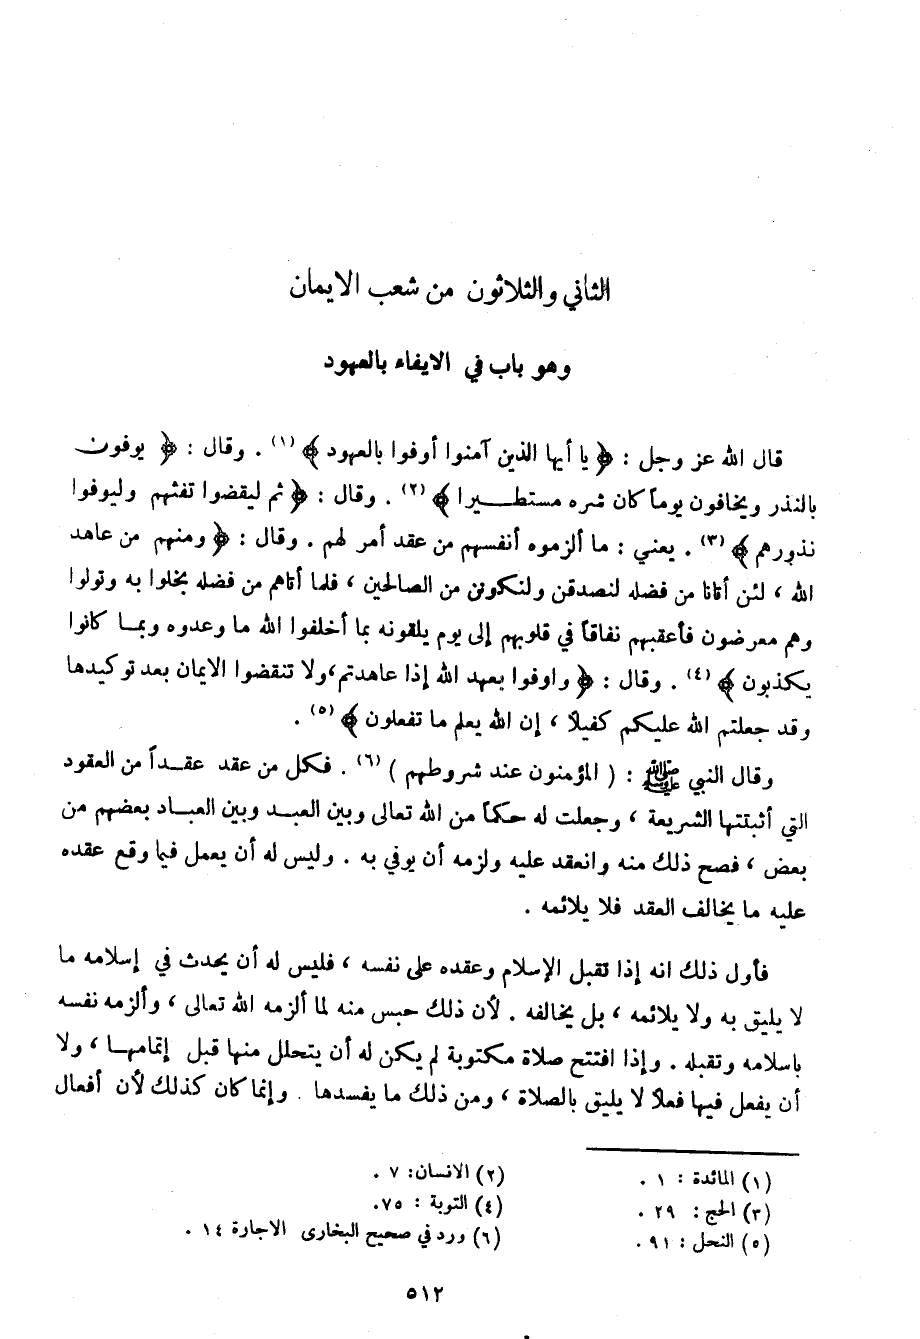 الثاني والثلاثون من شعب الايمان
وهو باب في الايفاء بالعهود
قال الله عز وجل : ﴿ يا أيها الذين آمنوا أوفوا بالعهود ﴾ (١) . وقال : ﴿ يوفون
بالنذر ويخافون يوماً كان شره مستطيرا ﴾ (٢) . وقال : ﴿ ثم ليقضوا تفثهم وليوفوا
نذورهم ﴾ (٣) . يعني : ما ألزموه أنفسهم من عقد أمر لهم . وقال : ﴿ ومنهم من عاهد
الله ، لئن أتانا من فضله لنصدقن ولنكونن من الصالحين ، فلما أتاهم من فضله بخلوا به وتولوا
وهم معرضون فأعقبهم نفاقاً في قلوبهم إلى يوم يلقونه بما أخلفوا الله ما وعدوه وبما كانوا
يكذبون ﴾ (٤) . وقال : ﴿ واوفوا بعهد الله إذا عاهدتم ، ولا تنقضوا الايمان بعد توكيدها
وقد جعلتم الله عليكم كفيلاً ، إن الله يعلم ما تفعلون ﴾ (٥) .
وقال النبي ﷺ : ( المؤمنون عند شروطهم ) (٦) . فكل من عقد عقداً من العقود
التي أثبتتها الشريعة ، وجعلت له حكماً من الله تعالى وبين العبد وبين العباد بعضهم من
بعض ، فصح ذلك منه وانعقد عليه ولزمه أن يوفي به . وليس له أن يعمل فيما وقع عقده
عليه ما يخالف العقد فلا يلائمه .
فأول ذلك انه إذا تقبل الإسلام وعقده على نفسه ، فليس له أن يحدث في إسلامه ما
لا يليق به ولا يلائمه ، بل يخالفه . لأن ذلك حبس منه لما ألزمه الله تعالى ، وألزمه نفسه
باسلامه وتقبله . وإذا افتتح صلاة مكتوبة لم يكن له أن يتحلل منها قبل إتمامها ، ولا
أن يفعل فيها فعلاً لا يليق بالصلاة ، ومن ذلك ما يفسدها . وإنما كان كذلك لأن أفعال
(١) المائدة : ١ . (٢) الانسان : ٧ .
(٣) الحج : ٢٩ . (٤) التوبة : ٧٥.
(٥) النحل : ٩١ . (٦) ورد في صحيح البخارى الاجارة ١٤ .
٥١٢